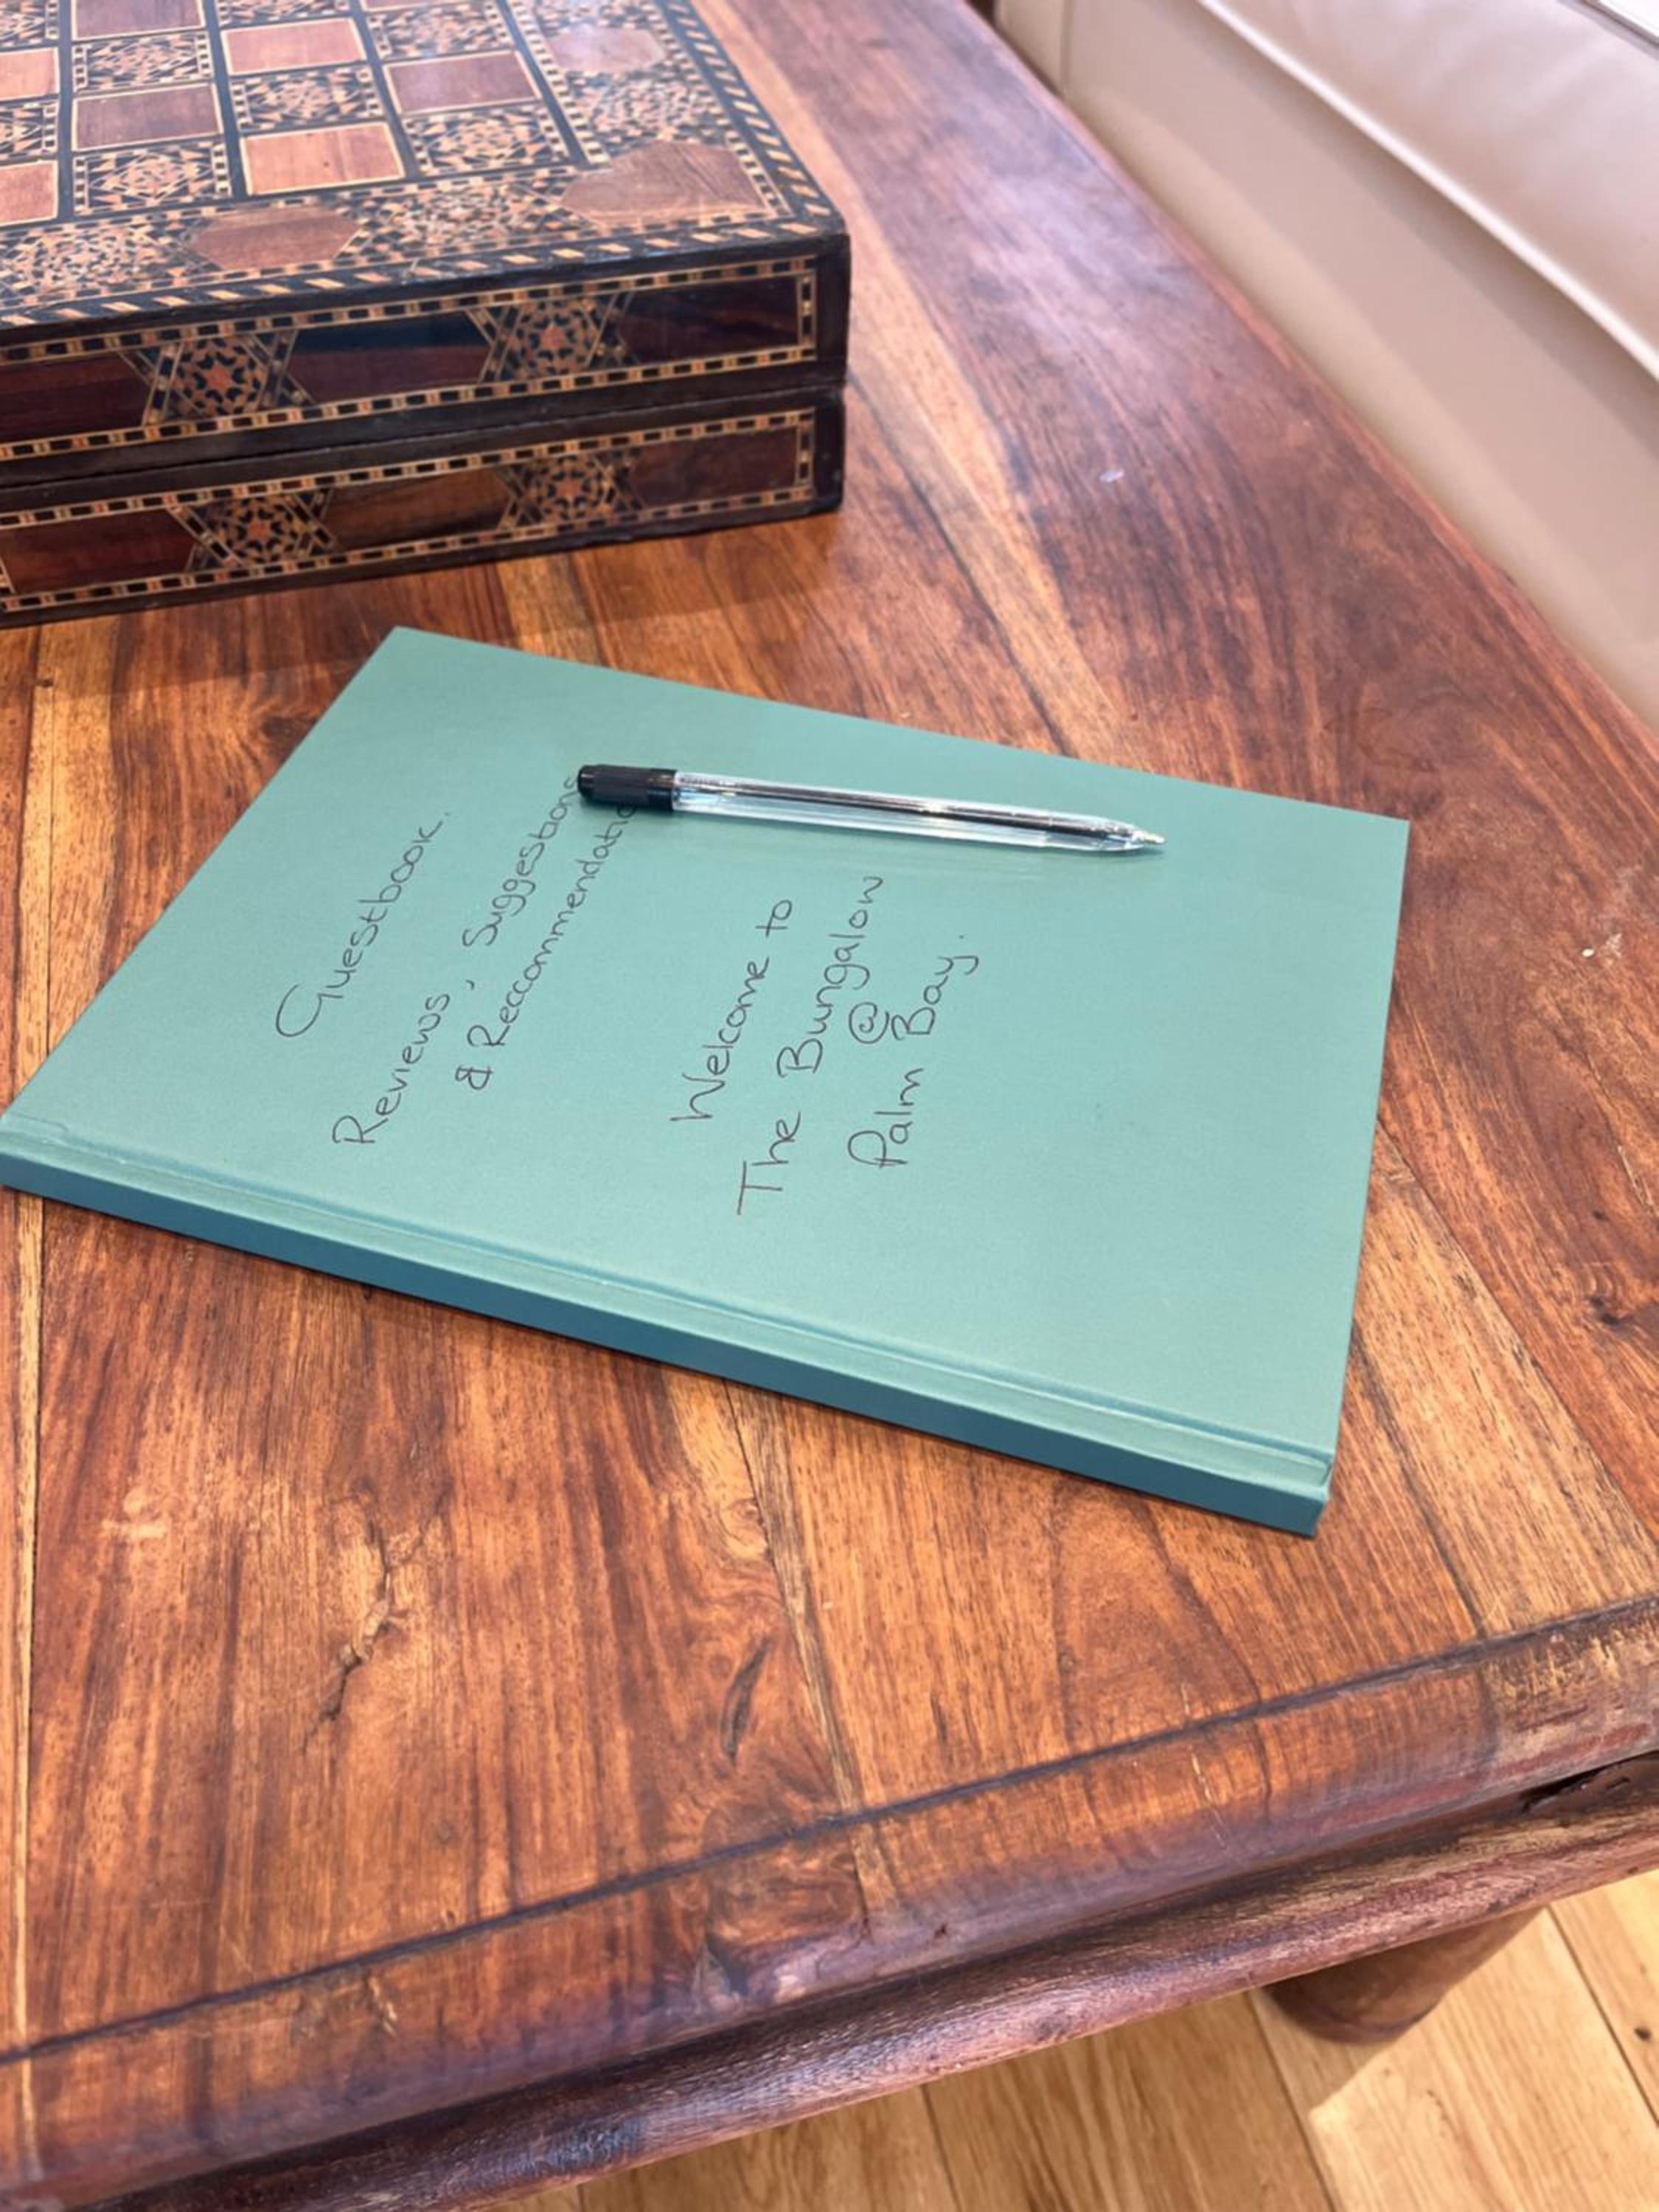 Guestbook.
Reviews, Suggestions
& Reccommendatio
Welcome to
The Bungalow
@
Palm Bay.